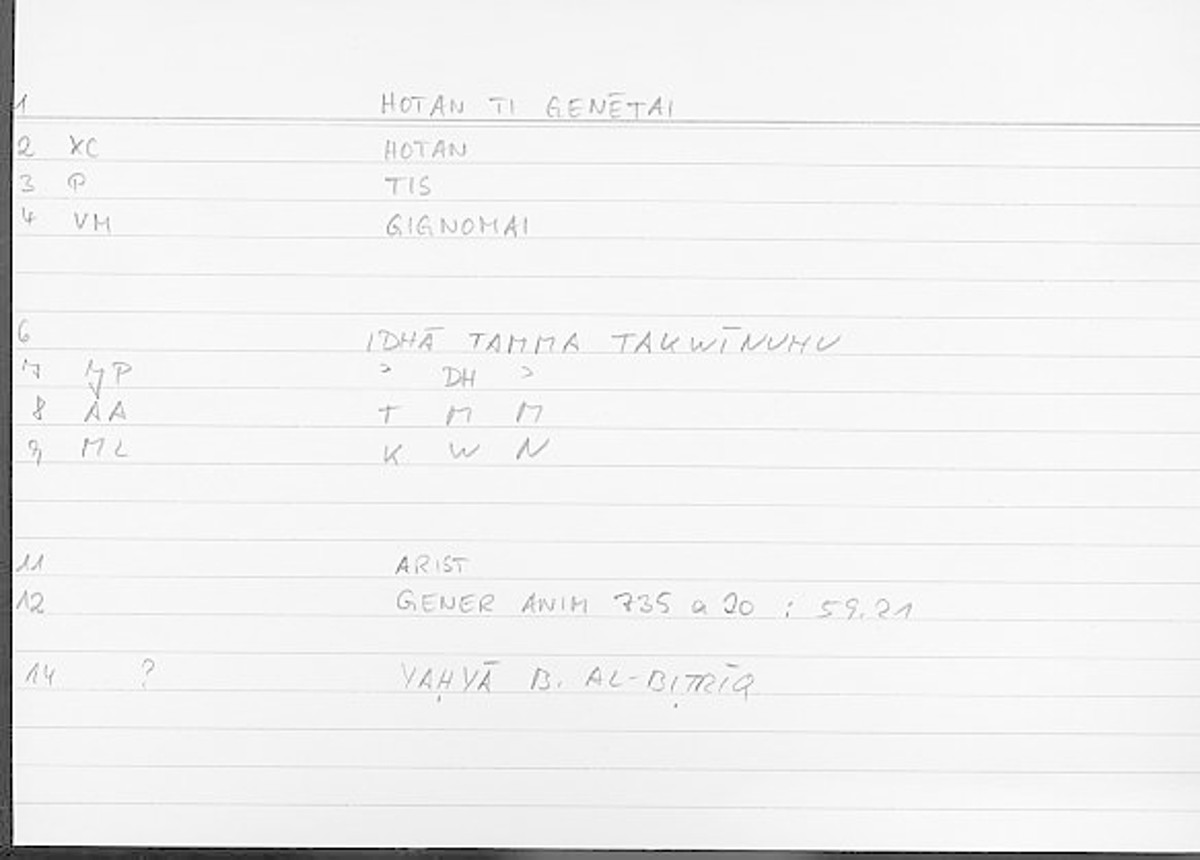 1 HOTAN TI GENĒTAI
2 XC HOTAN
3 P TIS
4 VM GIGNOMAI
6 IDHĀ TAMMA TAKWĪNUHU
7 P ʾ DH ʾ
8 AA T M M
9 ML K W N
11 ARIST
12 GENER ANIM 735 a 20 ; 59.21
14 ? YAḤYĀ B. AL-BIṬRĪQ